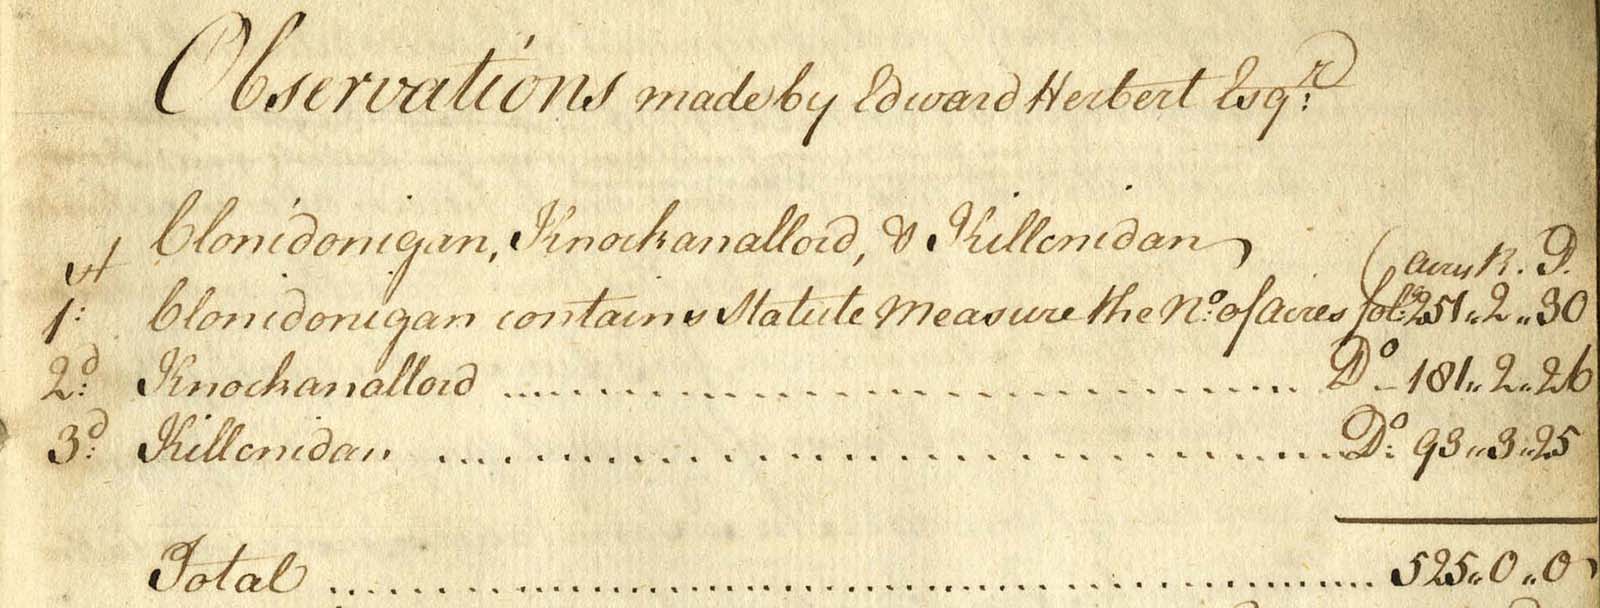 Observations made by Edward Herbert Esqr:
Clonidonigan, Knockanallord, & Killcnidan
Acres R. P.
1st: Clonidonigan contains Statute Measure the No: of Acres folg: 251,, 2,, 30
2d: Knockanallord .......... Do - 181,, 2,, 26
3d: Killcnidan .......... Do: 93,, 3,, 25
Total .......... 525,, 0,, 0